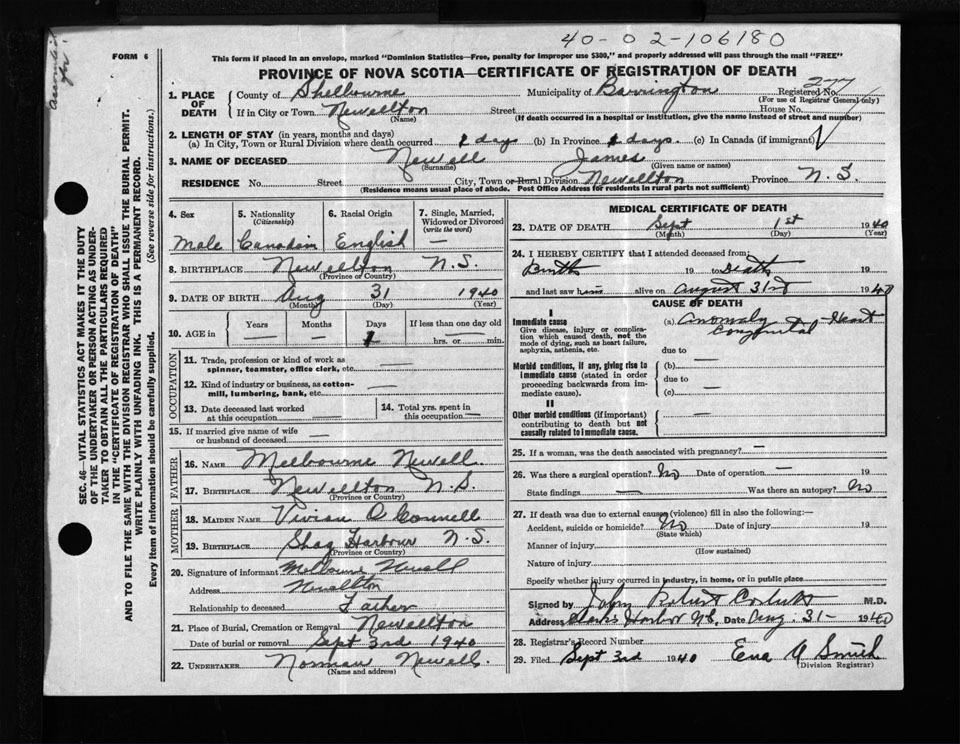 40-02-106180
FORM 6
This form if placed in an envelope, marked "Dominion Statistics—Free, penalty for improper use $300," and properly addressed will pass through the mail "FREE"
PROVINCE OF NOVA SCOTIA—CERTIFICATE OF REGISTRATION OF DEATH
1. PLACE OF DEATH
County of Shelbourne Municipality of Barrington Registered No. 277
(For use of Registrar General only)
If in City or Town Newellton Street House No.
(Name) (If death occurred in a hospital or institution, give the name instead of street and number)
2. LENGTH OF STAY (in years, months and days)
(a) In City, Town or Rural Division where death occurred 1 day (b) In Province 1 days. (c) In Canada (if immigrant)
3. NAME OF DECEASED Newell James
(Surname) (Given name or names)
RESIDENCE No. Street City, Town or Rural Division Newellton Province N.S.
(Residence means usual place of abode. Post Office Address for residents in rural parts not sufficient)
4. Sex 5. Nationality (Citizenship) 6. Racial Origin 7. Single, Married, Widowed or Divorced (write the word)
Male Canadain English —
8. BIRTHPLACE Newellton N.S.
(Province or Country)
9. DATE OF BIRTH Aug 31 1940
(Month) (Day) (Year)
10. AGE in Years Months Days If less than one day old
— — 1 hrs. or min.
OCCUPATION
11. Trade, profession or kind of work as spinner, teamster, office clerk, etc. —
12. Kind of industry or business, as cotton-mill, lumbering, bank, etc. —
13. Date deceased last worked at this occupation — 14. Total yrs. spent in this occupation —
15. If married give name of wife or husband of deceased —
FATHER
16. NAME Melbourne Newell.
17. BIRTHPLACE Newellton N.S.
(Province or Country)
MOTHER
18. MAIDEN NAME Vivian O Connell
19. BIRTHPLACE Shag Harbour N.S.
(Province or Country)
20. Signature of informant Melbourne Newell
Address Newellton
Relationship to deceased Father
21. Place of Burial, Cremation or Removal Newellton
Date of burial or removal Sept 3rd 1940
22. UNDERTAKER Norman Newell.
(Name and address)
MEDICAL CERTIFICATE OF DEATH
23. DATE OF DEATH Sept 1st 1940
(Month) (Day) (Year)
24. I HEREBY CERTIFY that I attended deceased from
Birth 19 to Death 19
and last saw him alive on August 31st 1940
CAUSE OF DEATH
I
Immediate cause
Give disease, injury or complication which caused death, not the mode of dying, such as heart failure, asphyxia, asthenia, etc.
(a) Anomaly Heart
Congenital
due to —
Morbid conditions, if any, giving rise to immediate cause (stated in order proceeding backwards from immediate cause).
(b) —
due to
(c) —
II
Other morbid conditions (if important) contributing to death but not causally related to immediate cause. —
25. If a woman, was the death associated with pregnancy? —
26. Was there a surgical operation? No Date of operation — 19
State findings — Was there an autopsy? No
27. If death was due to external causes (violence) fill in also the following:—
Accident, suicide or homicide? No Date of injury 19
(State which)
Manner of injury
(How sustained)
Nature of injury
Specify whether injury occurred in industry, in home, or in public place
Signed by John Robert M.D.
Address Clarks Harbor N.S. Date Aug. 31- 1940
28. Registrar's Record Number
29. Filed Sept 3rd 1940 Ena A Smith
(Division Registrar)
SEC. 46—VITAL STATISTICS ACT MAKES IT THE DUTY
OF THE UNDERTAKER OR PERSON ACTING AS UNDER-
TAKER TO OBTAIN ALL THE PARTICULARS REQUIRED
IN THE "CERTIFICATE OF REGISTRATION OF DEATH"
AND TO FILE THE SAME WITH THE DIVISION REGISTRAR WHO SHALL ISSUE THE BURIAL PERMIT.
WRITE PLAINLY WITH UNFADING INK. THIS IS A PERMANENT RECORD.
Every item of information should be carefully supplied. (See reverse side for instructions.)